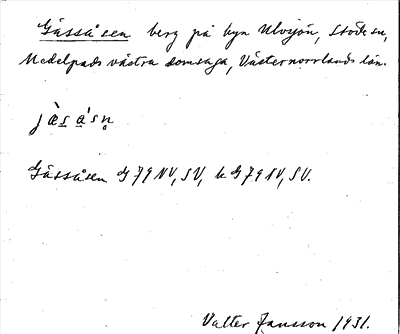 Gåssåsen berg på byn Ulvsjön, Stöde sn,
Medelpads västra domsaga, Västernorrlands län.
jæ̀sásn̥
Gåssåsen G79NV, SV, G79SV, SV.
Valter Jansson 1931.